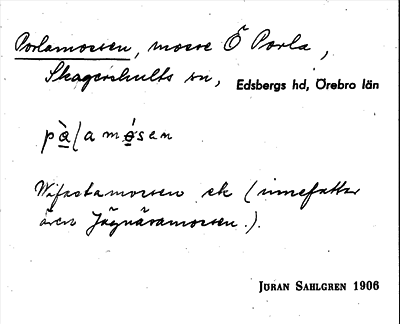 Porlamossen, mosse Ö Porla,
Skagershults sn, Edsbergs hd, Örebro län
pὰ̠ɭamó̠sen
Wifastamossen ek (innefattar
även Jägnäramossen.).
JÖRAN SAHLGREN 1906